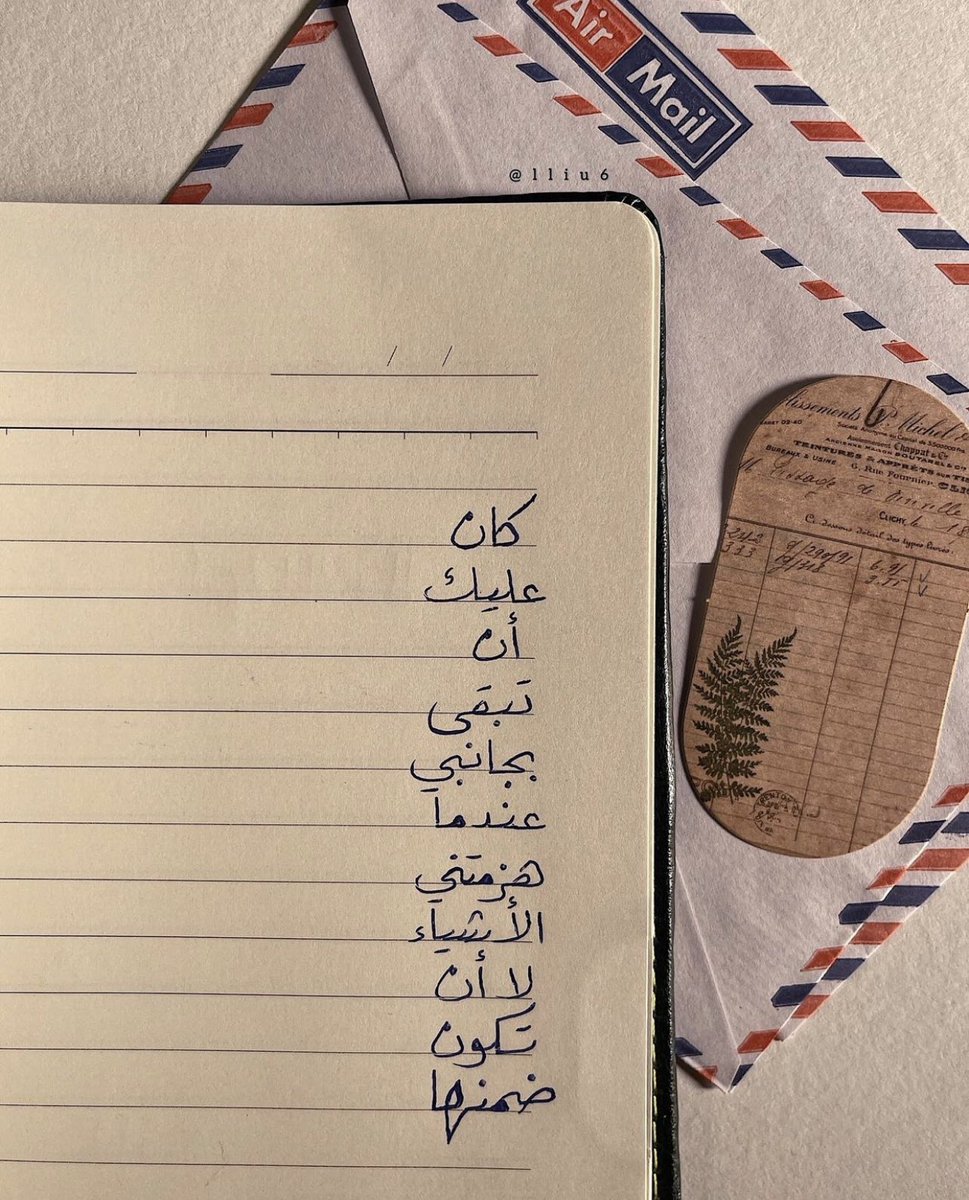 Air
Mail
@lliu6
/ /
كان
عليك
أن
تبقى
بجانبي
عندما
هزمتني
الأشياء
لا أن
تكون
ضمنها
P. Michel
Chappat & Cie
TEINTURES & APPRÊTS SUR
BUREAUX & USINE : 6, Rue Fournier
CLICHY, le